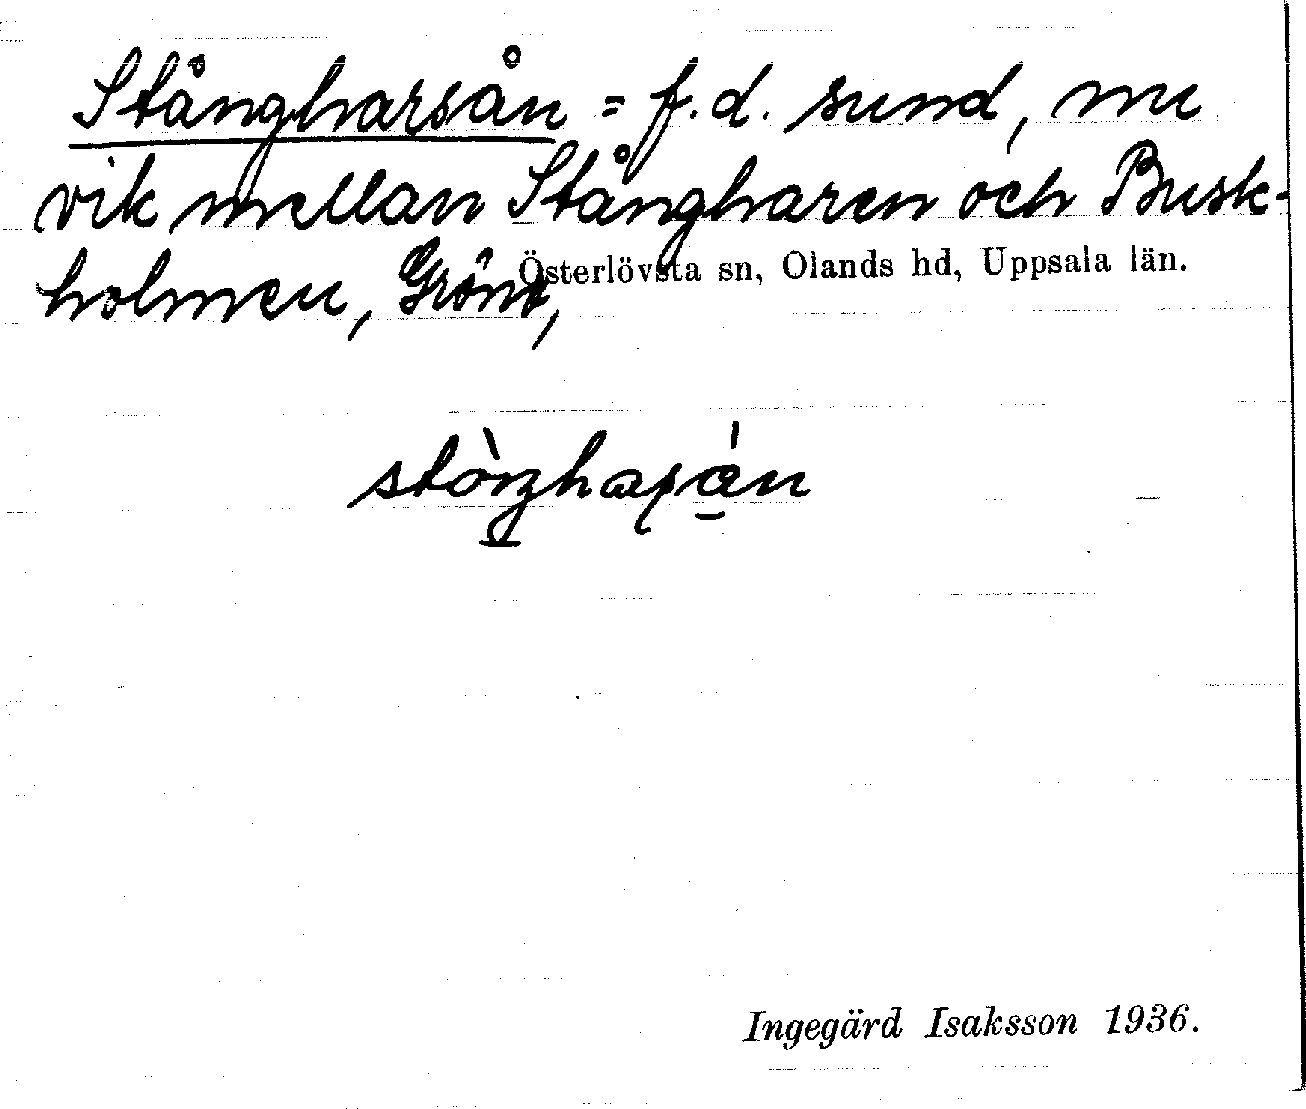 Stångharsån = f.d. sund, nu
vik mellan Stångharen och Busk-
holmen, Grönö,
Österlövsta sn, Olands hd, Uppsala län.
Ingegärd Isaksson 1936.